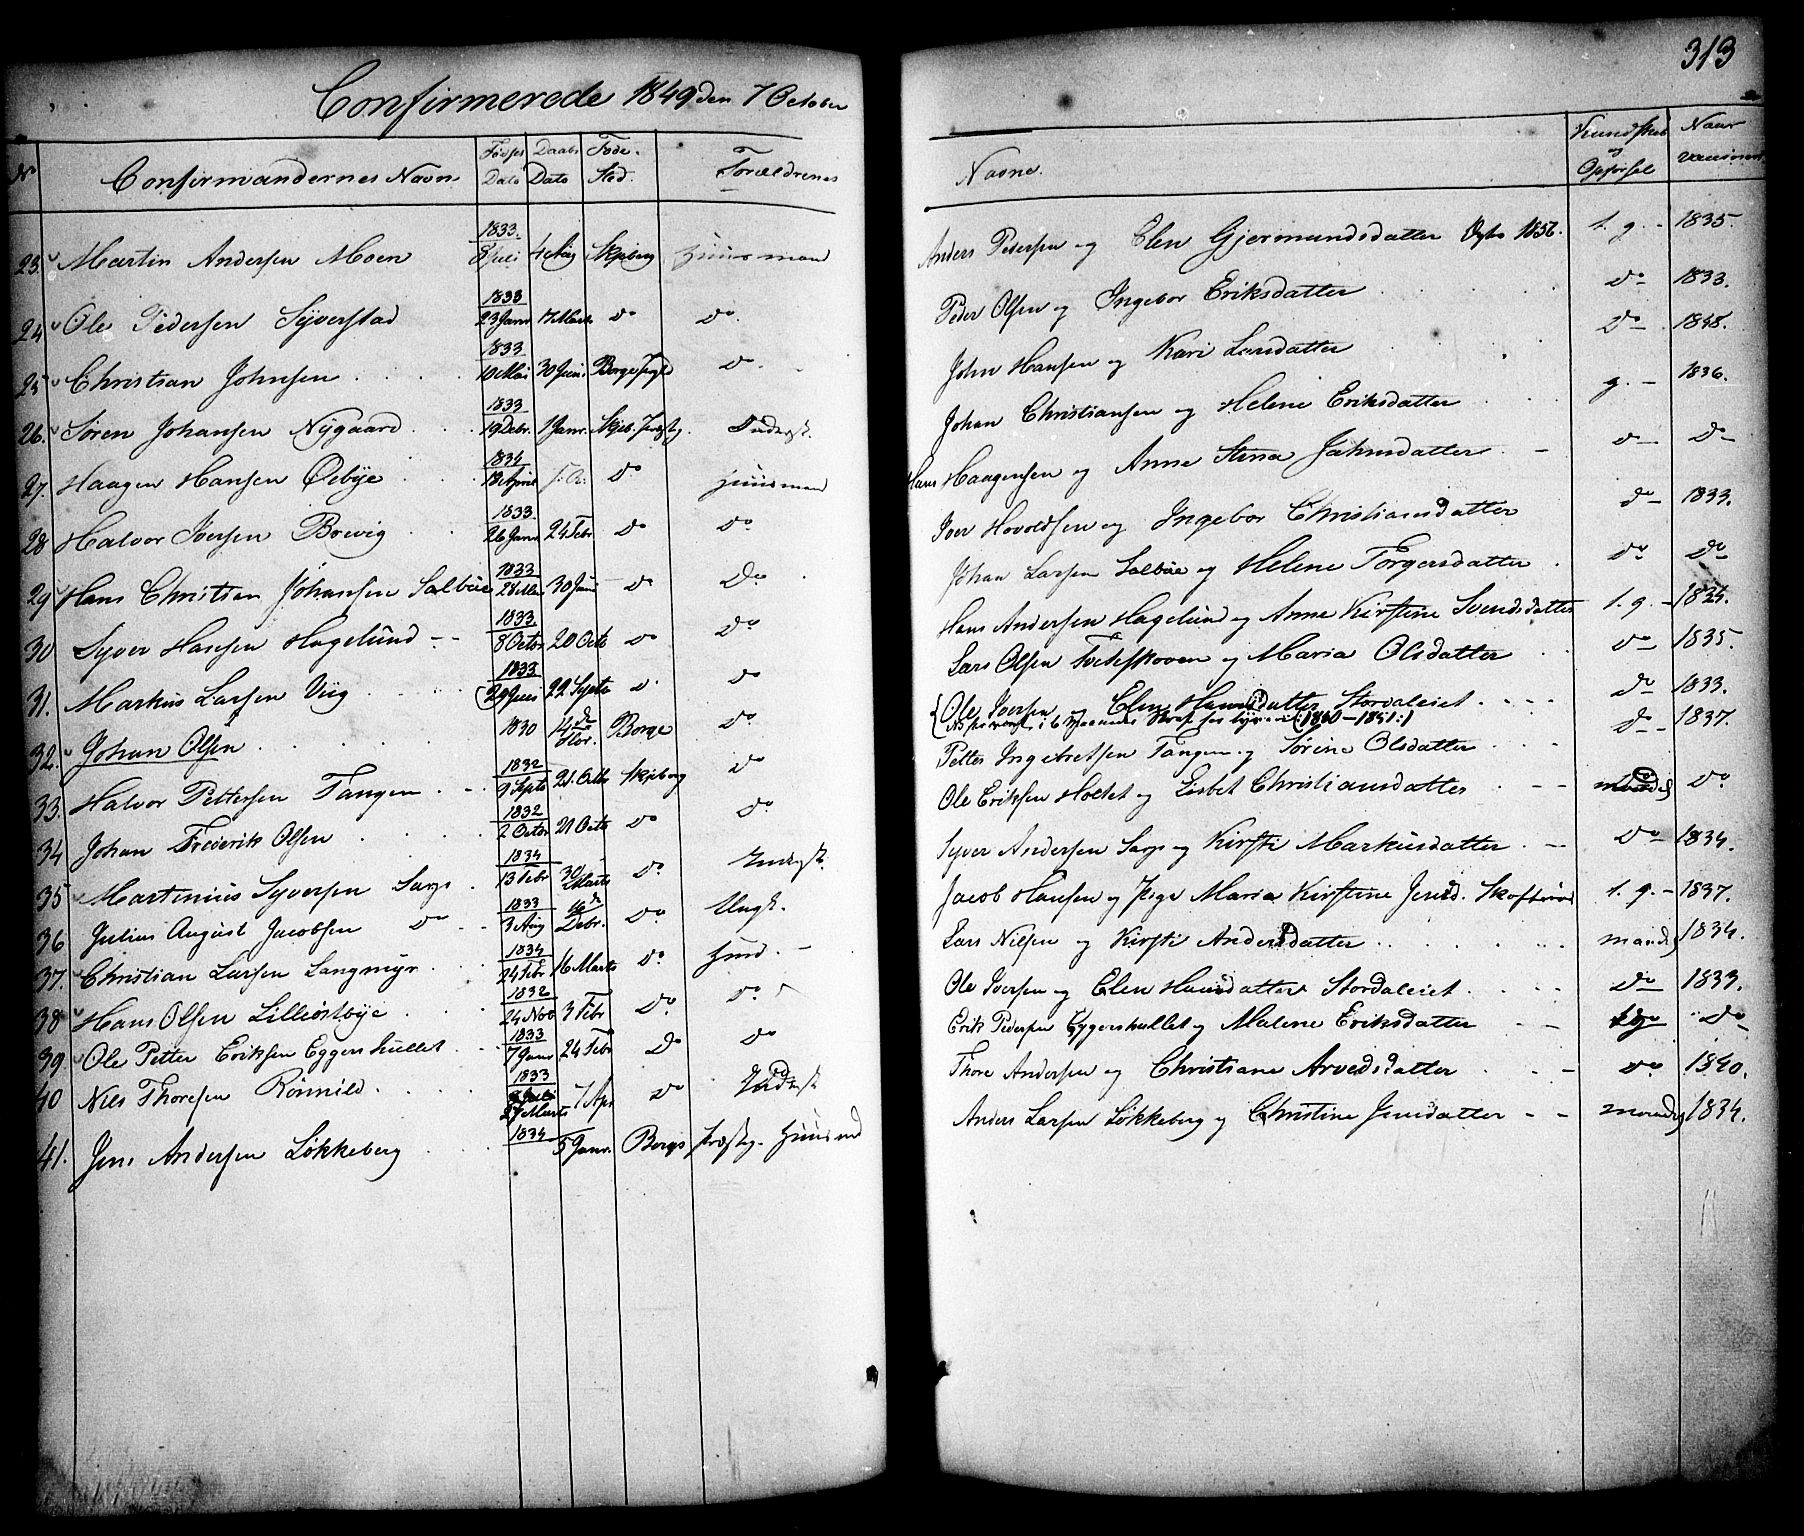 313
Confirmerede 1849 den 7 October
No Confirmandernes Navn Fødsels Dato Daabs Dato Føde-Sted. Forældrenes
Navne. Kundskab og Opførsel Naar vaccineret
23. Martin Andersen Moen 1833. 8 Juli 4 Aug Skjeberg Huusmand Anders Pedersen og Elen Gjermundsdatter 1856. t. g. - 1835.
24 Ole Pedersen Syverstad 1833 23 Janr 17 Marts do do. Peder Olsen og Ingebor Eriksdatter do 1833.
25 Christian Johnsen 1833 10 Mai 30 Juni Borge do John Hansen og Kari Larsdatter do 1848.
26. Søren Johansen Nygaard 1833 19 Debr. 1 Janr. Skjeb. Præstg. Johan Christiansen og Helene Eriksdatter g. - 1836.
27. Haagen Hansen Oebye 1834 18 April do Huusmand Hans Haagensen og Anne Stina Jahnsdatter do do
28 Halvor Iversen Borvig 1833. 26 Janr 24 Febr do do Iver Hovoldsen og Ingebor Christiansdatter do 1833.
29 Hans Christian Johansen Salbue 1833 28 Mai 30 Juni do Do Johan Larsen Salbue og Helene Torgersdatter do do
30 Syver Hansen Hagelund 1833. 8 Octor 20 Octo do do Hans Andersen Hagelund og Anne Kirstine Svendsdatter t. g. - 1834.
31. Markus Larsen Viig 1833 29 22 Septr do do Lars Olsen og Maria Olsdatter do 1835.
32. Johan Olsen 1830 14de Borge do Ole Iversen og Elen Hansdatter Stordaleiet do 1833.
(1840-1841:)
33. Halvor Pettersen Tangen 1832 9 Septr 21. Octbr Skjeberg do Petter Ingebretsen Tangen og Sørine Olsdatter do 1837.
34 Johan Frederik Olsen 1832 2 Octor 21 Octo do do Ole Eriksen Holtet og Lisbet Christiansdatter do.
35 Martinius Syversen Sarps 1834 13 Febr 30 Marts do. Inderst. Syver Andersen Sarps og Kirsti Markusdatter do 1834.
36 Julius August Jacobsen do 1833 3 Aug 16de Debr. do Ungk. Jacob Hansen og Pige Maria Kirstine Jensd. t. g. - 1837.
37. Christian Larsen Langmyr 1834 24 Febr 16 Marts do. Huusd. Lars Nilsen og Kirsti Andersdatter maadel 1834.
38 Hans Olsen Lilliøstbye 1832 24 Nov 3 Febr do do Ole Iversen og Elen Hansdatter Stordaleiet do 1833.
39. Ole Petter Eriksen Eggershullet 1833 7 Janr 24 Febr do do Erik Pedersen Eggershullet og Malene Eriksdatter do
40 Nils Thoresen Rönnild. 1833 27 Marts 7 Apr do Thore Andersen og Christiane Arvedsdatter do. 1840.
41. Jens Andersen Løkkeberg 1834 5 Janr. Borge Præstg. Huusmd Anders Larsen Løkkeberg og Christine Jensdatter maadel 1834.